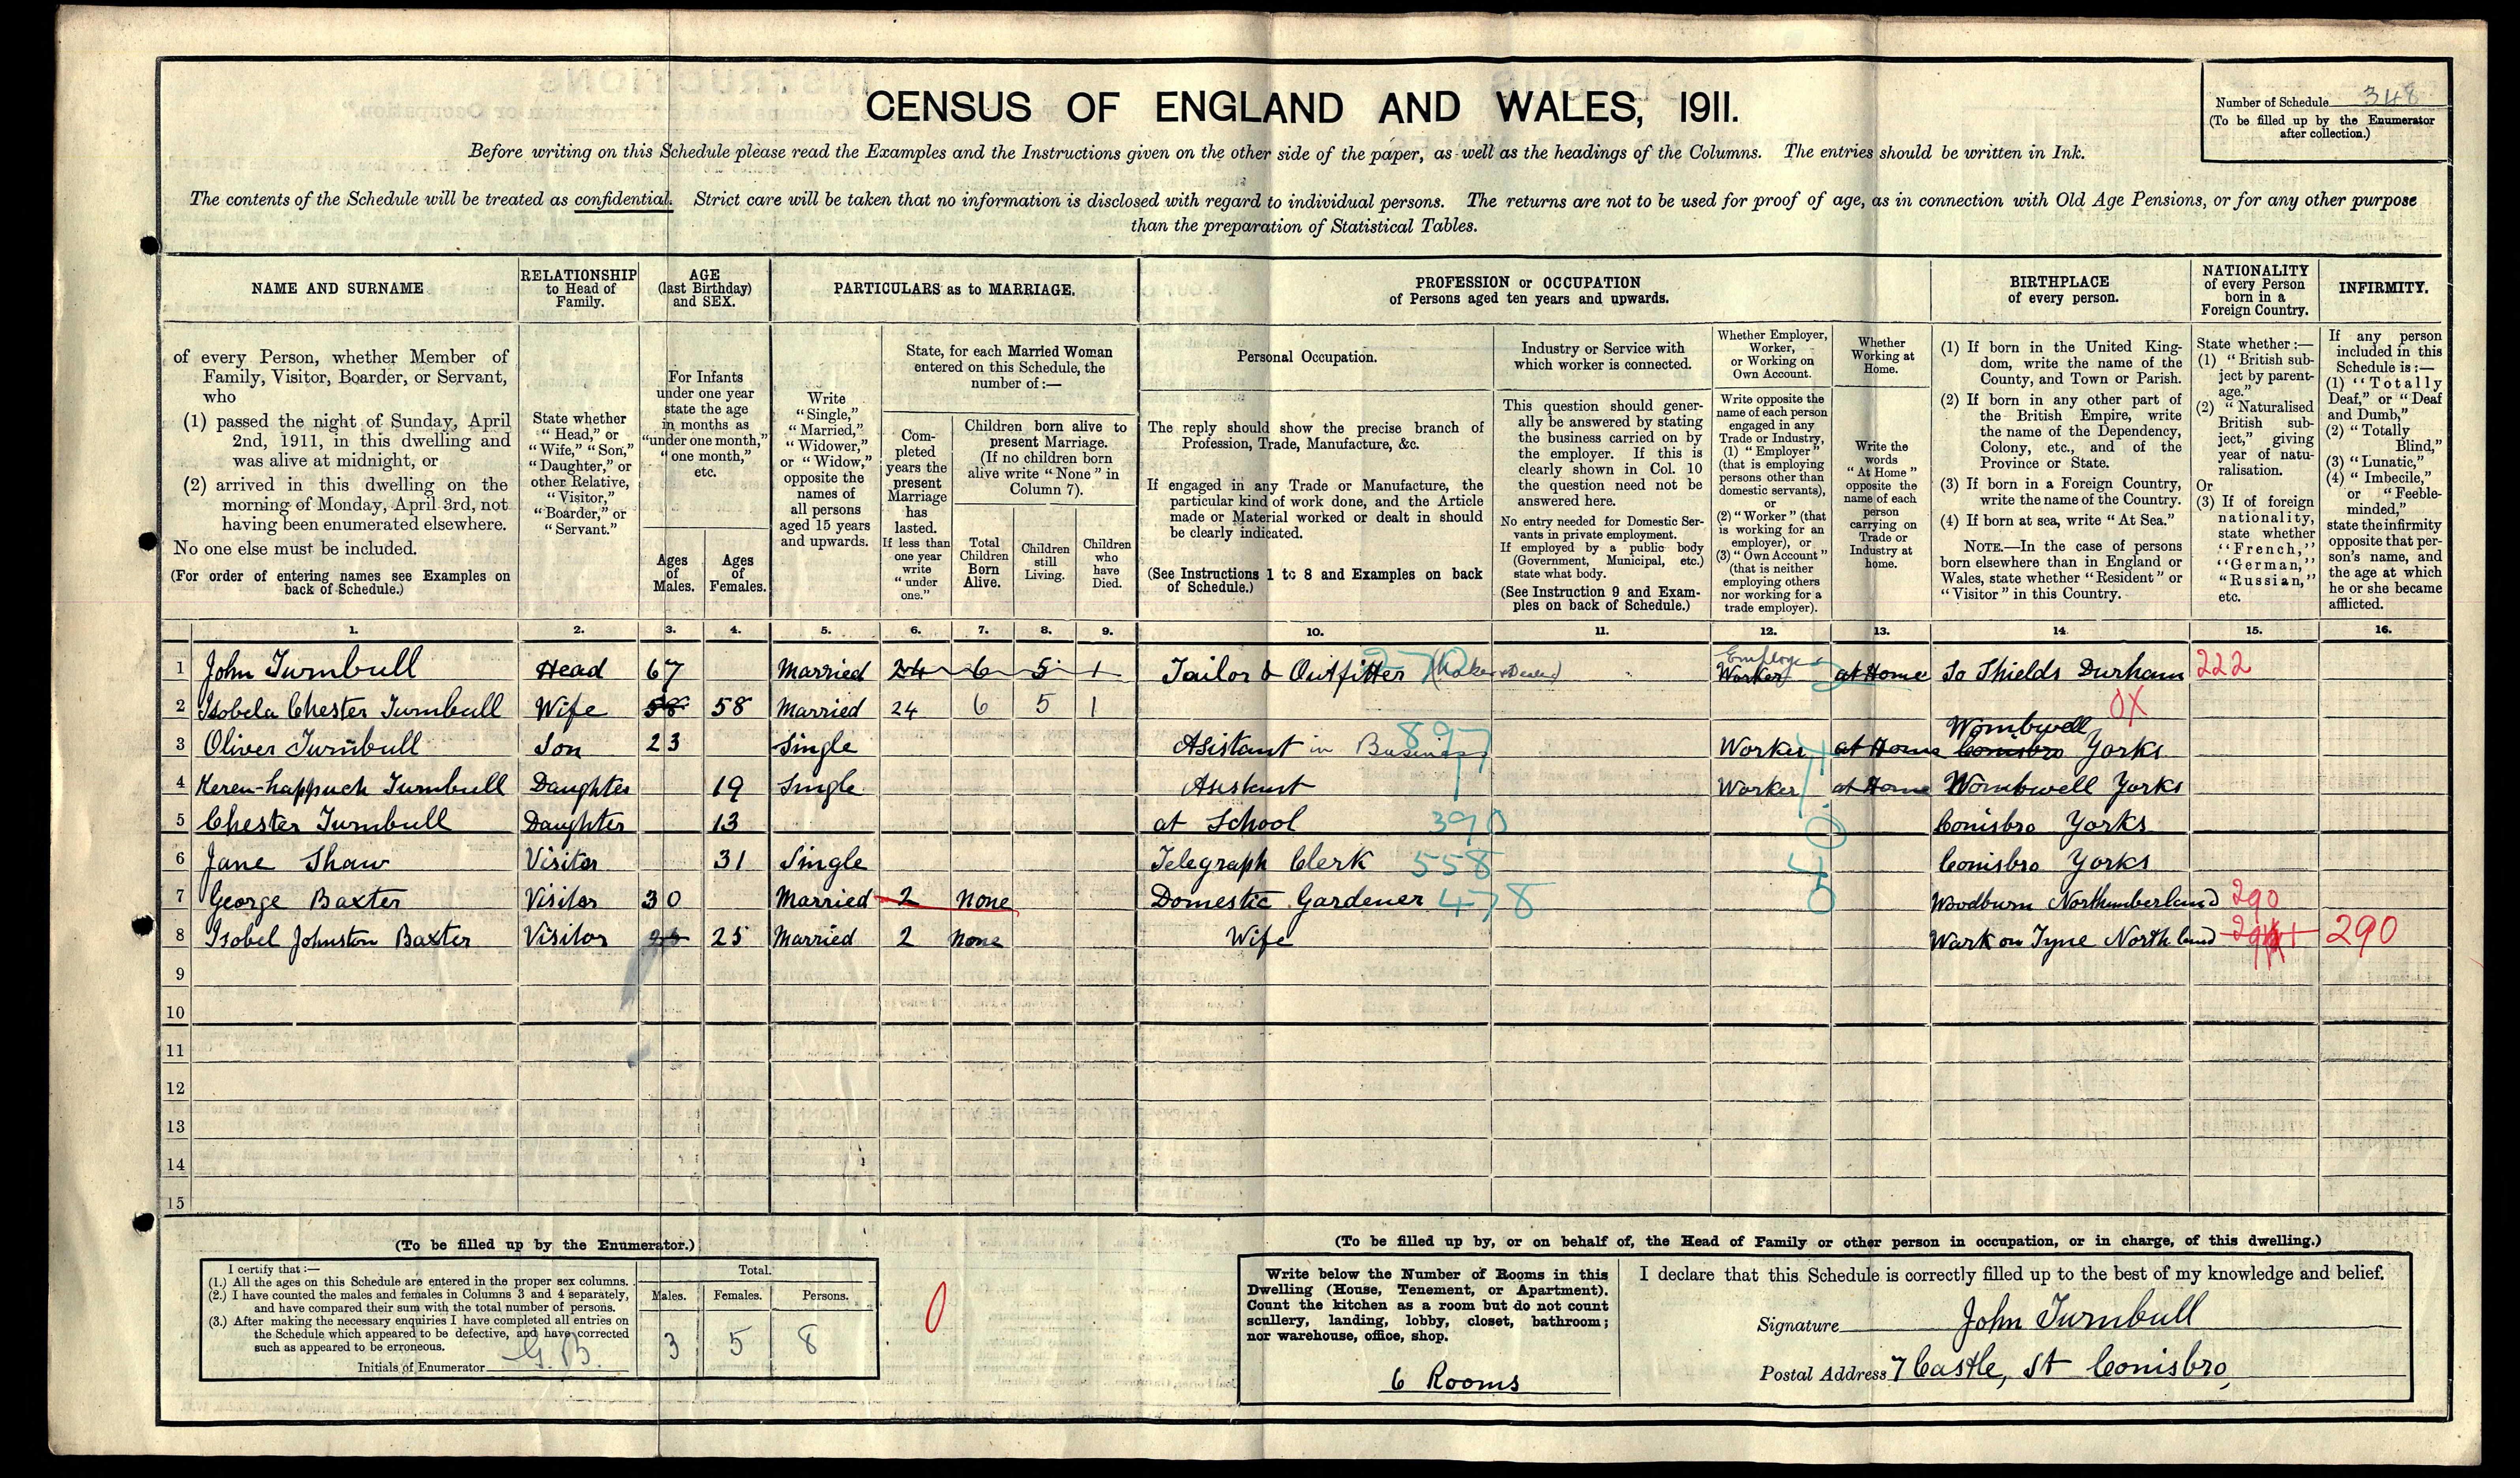 CENSUS OF ENGLAND AND WALES, 1911.
Number of Schedule 348
(To be filled up by the Enumerator
after collection.)
Before writing on this Schedule please read the Examples and the Instructions given on the other side of the paper, as well as the headings of the Columns. The entries should be written in Ink.
The contents of the Schedule will be treated as confidential. Strict care will be taken that no information is disclosed with regard to individual persons. The returns are not to be used for proof of age, as in connection with Old Age Pensions, or for any other purpose
than the preparation of Statistical Tables.
NAME AND SURNAME
of every Person, whether Member of
Family, Visitor, Boarder, or Servant,
who
(1) passed the night of Sunday, April
2nd, 1911, in this dwelling and
was alive at midnight, or
(2) arrived in this dwelling on the
morning of Monday, April 3rd, not
having been enumerated elsewhere.
No one else must be included.
(For order of entering names see Examples on
back of Schedule.)
RELATIONSHIP
to Head of
Family.
State whether
"Head," or
"Wife," "Son,"
"Daughter," or
other Relative,
"Visitor,"
"Boarder," or
"Servant."
AGE
(last Birthday)
and SEX.
For Infants
under one year
state the age
in months as
"under one month,"
"one month,"
etc.
Ages
of
Males.
Ages
of
Females.
PARTICULARS as to MARRIAGE.
Write
"Single,"
"Married,"
"Widower,"
or "Widow,"
opposite the
names of
all persons
aged 15 years
and upwards.
State, for each Married Woman
entered on this Schedule, the
number of:—
Com-
pleted
years the
present
Marriage
has
lasted.
If less than
one year
write
"under
one."
Children born alive to
present Marriage.
(If no children born
alive write "None" in
Column 7).
Total
Children
Born
Alive.
Children
still
Living.
Children
who
have
Died.
PROFESSION or OCCUPATION
of Persons aged ten years and upwards.
Personal Occupation.
The reply should show the precise branch of
Profession, Trade, Manufacture, &c.
If engaged in any Trade or Manufacture, the
particular kind of work done, and the Article
made or Material worked or dealt in should
be clearly indicated.
(See Instructions 1 to 8 and Examples on back
of Schedule.)
Industry or Service with
which worker is connected.
This question should gener-
ally be answered by stating
the business carried on by
the employer. If this is
clearly shown in Col. 10
the question need not be
answered here.
No entry needed for Domestic Ser-
vants in private employment.
If employed by a public body
(Government, Municipal, etc.)
state what body.
(See Instruction 9 and Exam-
ples on back of Schedule.)
Whether Employer,
Worker,
or Working on
Own Account.
Write opposite the
name of each person
engaged in any
Trade or Industry,
(1) "Employer"
(that is employing
persons other than
domestic servants),
or
(2) "Worker" (that
is working for an
employer), or
(3) "Own Account"
(that is neither
employing others
nor working for a
trade employer).
Whether
Working at
Home.
Write the
words
"At Home"
opposite the
name of each
person
carrying on
Trade or
Industry at
home.
BIRTHPLACE
of every person.
(1) If born in the United King-
dom, write the name of the
County, and Town or Parish.
(2) If born in any other part of
the British Empire, write
the name of the Dependency,
Colony, etc., and of the
Province or State.
(3) If born in a Foreign Country,
write the name of the Country.
(4) If born at sea, write "At Sea."
NOTE.—In the case of persons
born elsewhere than in England or
Wales, state whether "Resident" or
"Visitor" in this Country.
NATIONALITY
of every Person
born in a
Foreign Country.
State whether:—
(1) "British sub-
ject by parent-
age."
(2) "Naturalised
British sub-
ject," giving
year of natu-
ralisation.
Or
(3) If of foreign
nationality,
state whether
"French,"
"German,"
"Russian,"
etc.
INFIRMITY.
If any person
included in this
Schedule is:—
(1) "Totally
Deaf," or "Deaf
and Dumb,"
(2) "Totally
Blind,"
(3) "Lunatic,"
(4) "Imbecile,"
or "Feeble-
minded,"
state the infirmity
opposite that per-
son's name, and
the age at which
he or she became
afflicted.
1. 2. 3. 4. 5. 6. 7. 8. 9. 10. 11. 12. 13. 14. 15. 16.
1 John Turnbull Head 67 Married 24 6 5 1 Tailor & Outfitter (Maker & Dealer) Employer Worker at Home So Shields Durham 222
2 Isobela Chester Turnbull Wife 58 58 Married 24 6 5 1 OX
3 Oliver Turnbull Son 23 Single Asistant in Business 897 Worker at Home Wombwell Conisbro Yorks
4 Keren-happuch Turnbull Daughter 19 Single Asistant Worker at Home Wombwell Yorks
5 Chester Turnbull Daughter 13 at School 390 Conisbro Yorks
6 Jane Shaw Visitor 31 Single Telegraph Clerk 558 Conisbro Yorks
7 George Baxter Visitor 30 Married 2 none Domestic Gardener 478 Woodburn Northumberland 290
8 Isobel Johnston Baxter Visitor 25 25 Married 2 none Wife Wark on Tyne Northland 290
9
10
11
12
13
14
15
(To be filled up by the Enumerator.)
I certify that:—
(1.) All the ages on this Schedule are entered in the proper sex columns.
(2.) I have counted the males and females in Columns 3 and 4 separately,
and have compared their sum with the total number of persons.
(3.) After making the necessary enquiries I have completed all entries on
the Schedule which appeared to be defective, and have corrected
such as appeared to be erroneous.
Initials of Enumerator G.B.
Total.
Males. Females. Persons.
3 5 8
0
(To be filled up by, or on behalf of, the Head of Family or other person in occupation, or in charge, of this dwelling.)
Write below the Number of Rooms in this
Dwelling (House, Tenement, or Apartment).
Count the kitchen as a room but do not count
scullery, landing, lobby, closet, bathroom;
nor warehouse, office, shop.
6 Rooms
I declare that this Schedule is correctly filled up to the best of my knowledge and belief.
Signature John Turnbull
Postal Address 7 Castle, St Conisbro,